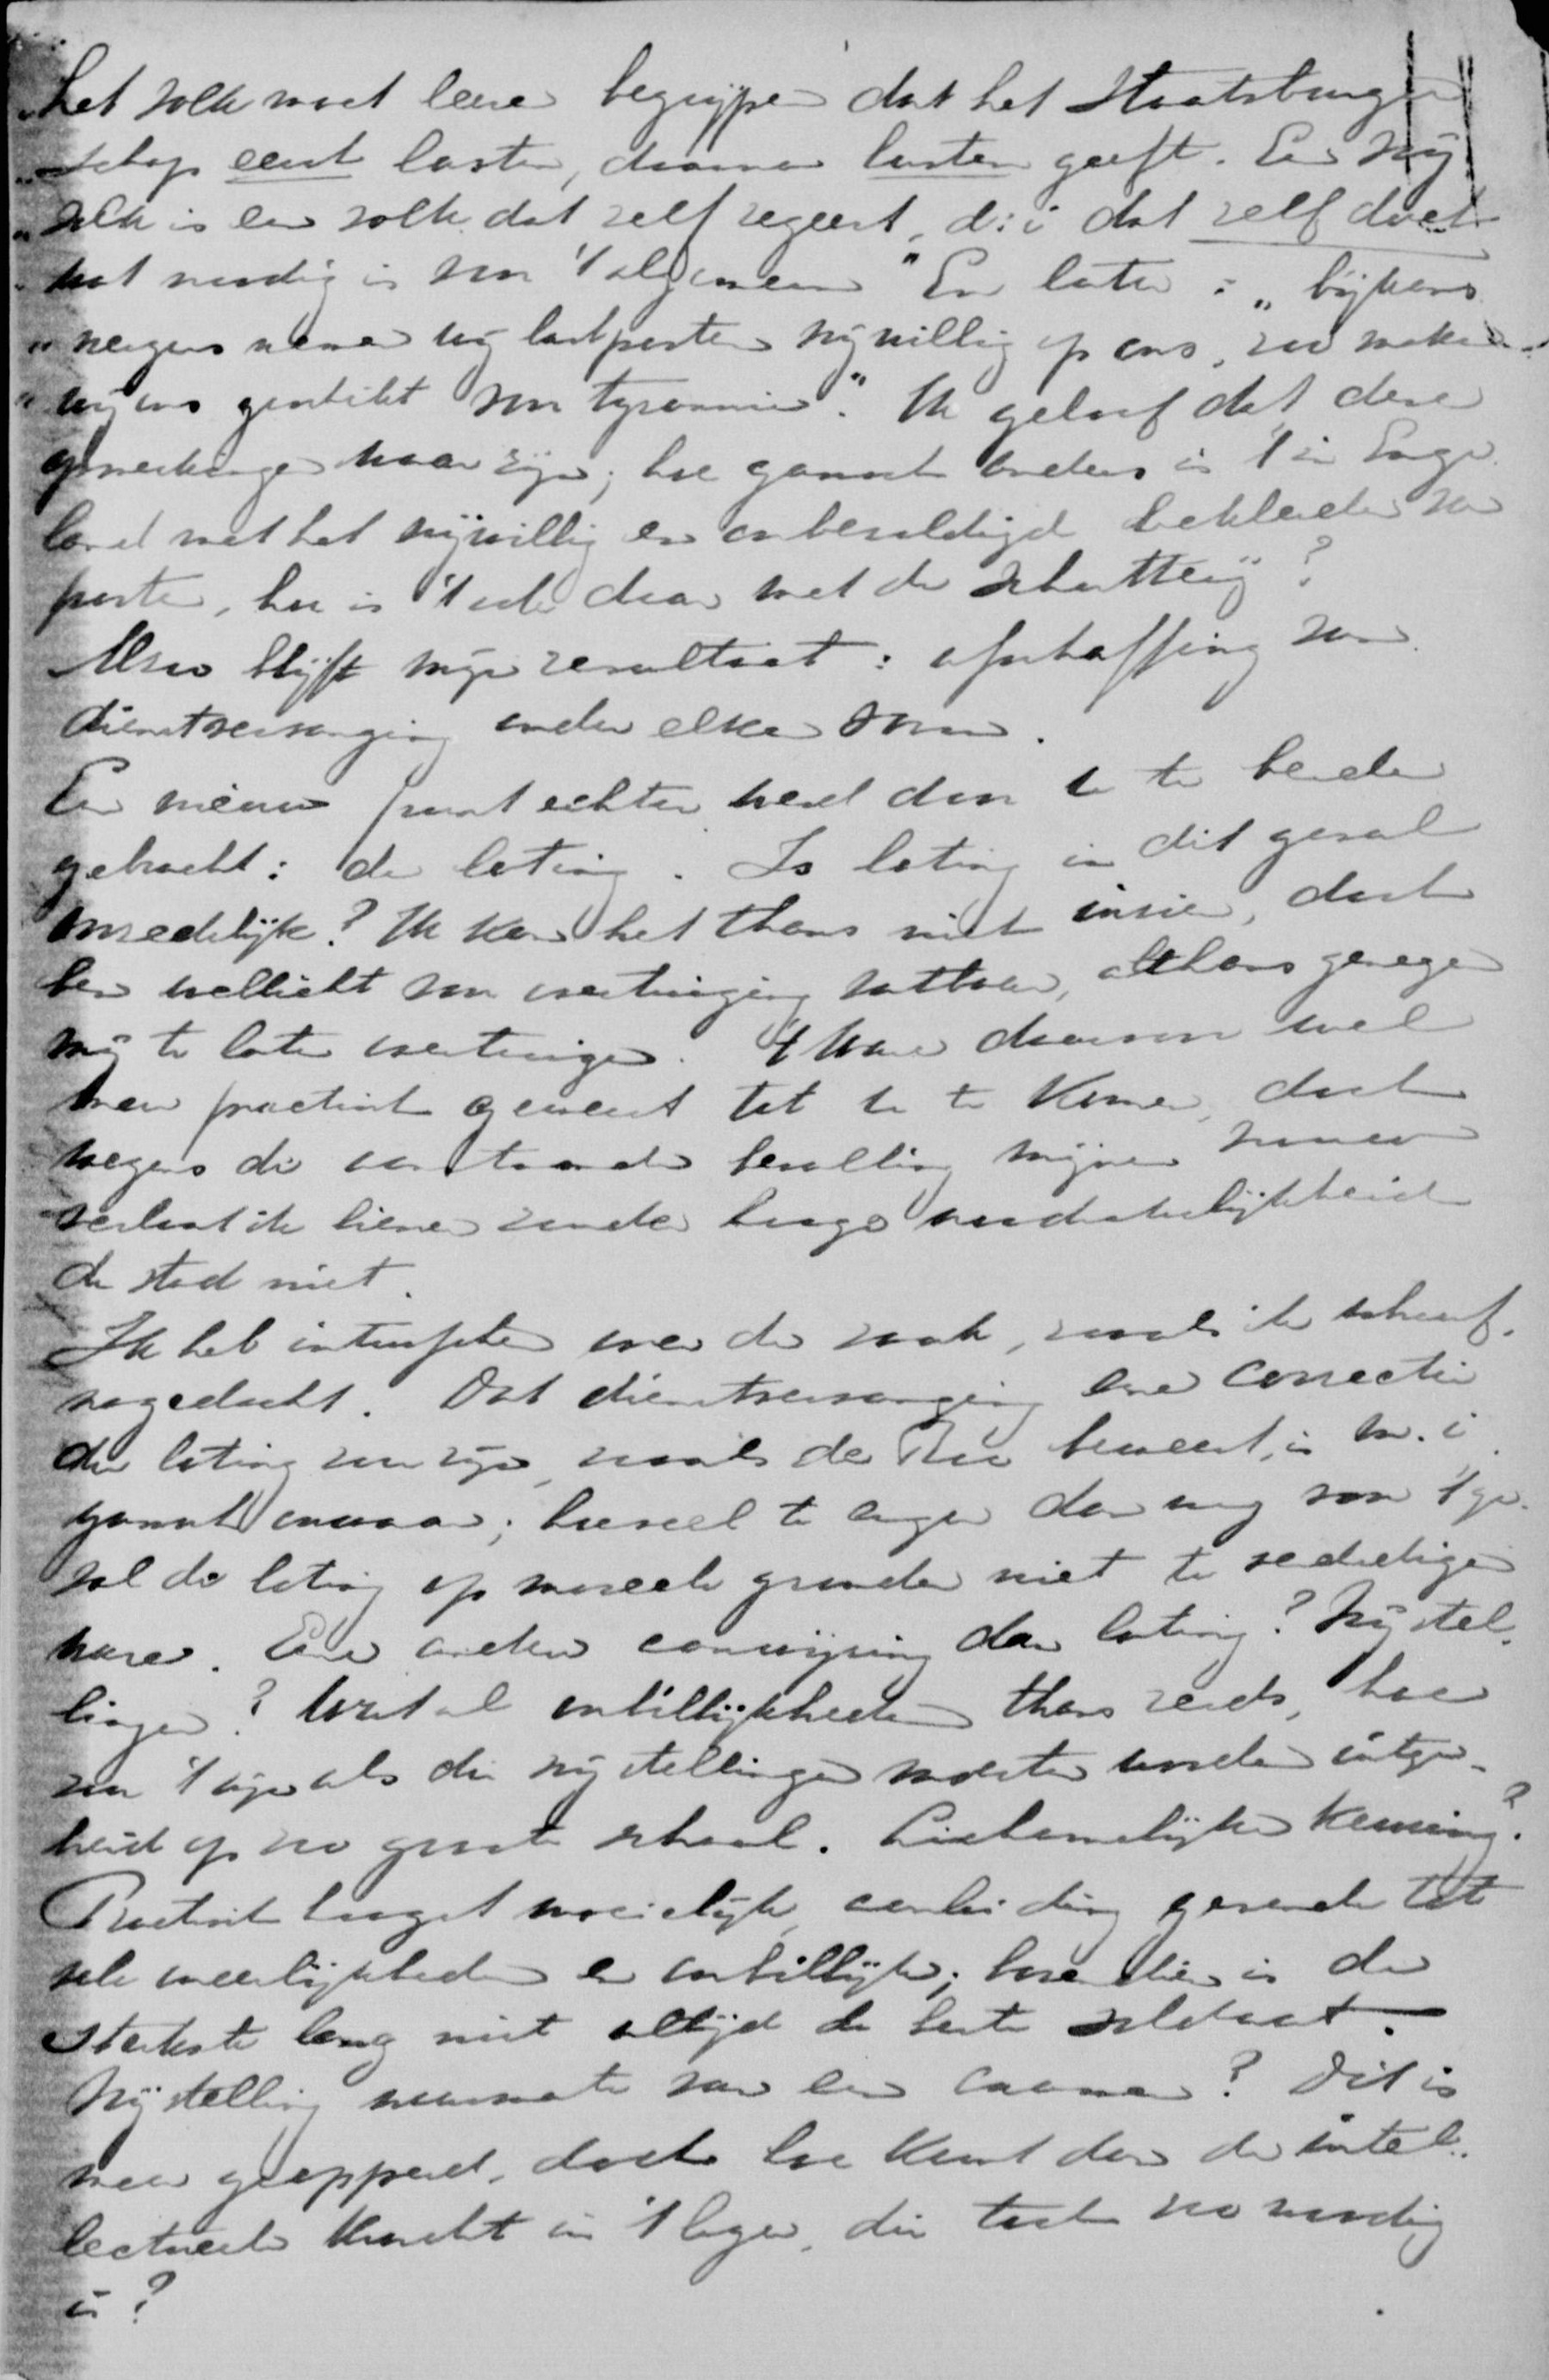 „Het volk moet leeren begrijpen dat het Staatsburger
„schap eerst lasten, daarna lusten geeft. Een vrij
„volk is een volk dat zelf regeert, d:i dat zelf doet
„wat noodig is voor 't algemeen" En later: „bijkans
„nergens nemen wij lastposten vrijwillig op ons, zoo maken
„wij ons geschikt voor tyrannie". Ik geloof dat deze
opmerkingen waar zijn; hoe gansch anders is 't in Enge
land met het vrijwillig en onbezoldigd bekleeden van
posten, hoe is 't ook daar met de schutterij?
Alzoo blijft mijn resultaat: afschaffing van
dienstvervanging onder elken vorm.
Een nieuw punt echter werd door U te berde
gebracht: de loting. Is loting in dit geval
onzedelijk? Ik kan het thans niet inzien, doch
ben wellicht voor overtuiging vatbaar, althans genegen
mij te laten overtuigen. 't Ware daarom wel
meer practisch geweest tot U te komen, doch
wegens de aanstaande bevalling mijner vrouw
verlaat ik liever zonder hooge noodzakelijkheid
de stad niet.
Ik heb intusschen over de zaak, zooals ik schreef,
nagedacht. Dat dienstvervanging eene correctie
der loting zou zijn, zooals de beweert, is m. i
gansch onwaar; hoeveel te erger dan nog voor 't ge
val de loting op moreele gronden niet te verdedigen
ware. Eene andere aanwijzing dan loting? Vrijstel
lingen? Wat al onbillijkheden thans reeds, hoe
zou 't zijn als die vrijstellingen moesten worden uitge-
breid op zoo groote schaal. Lichamelijke keuring?
Practisch hoogst moeielijk, aanleiding gevende tot
vele oneerlijkheden en onbillijk; bovendien is de
sterkste lang niet altijd de beste soldaat.
Vrijstelling naarmate van een examen? Dit is
meer geopperd, doch hoe komt dan de intel-
lectueele kracht in 't leger, die toch zoo noodig
is?